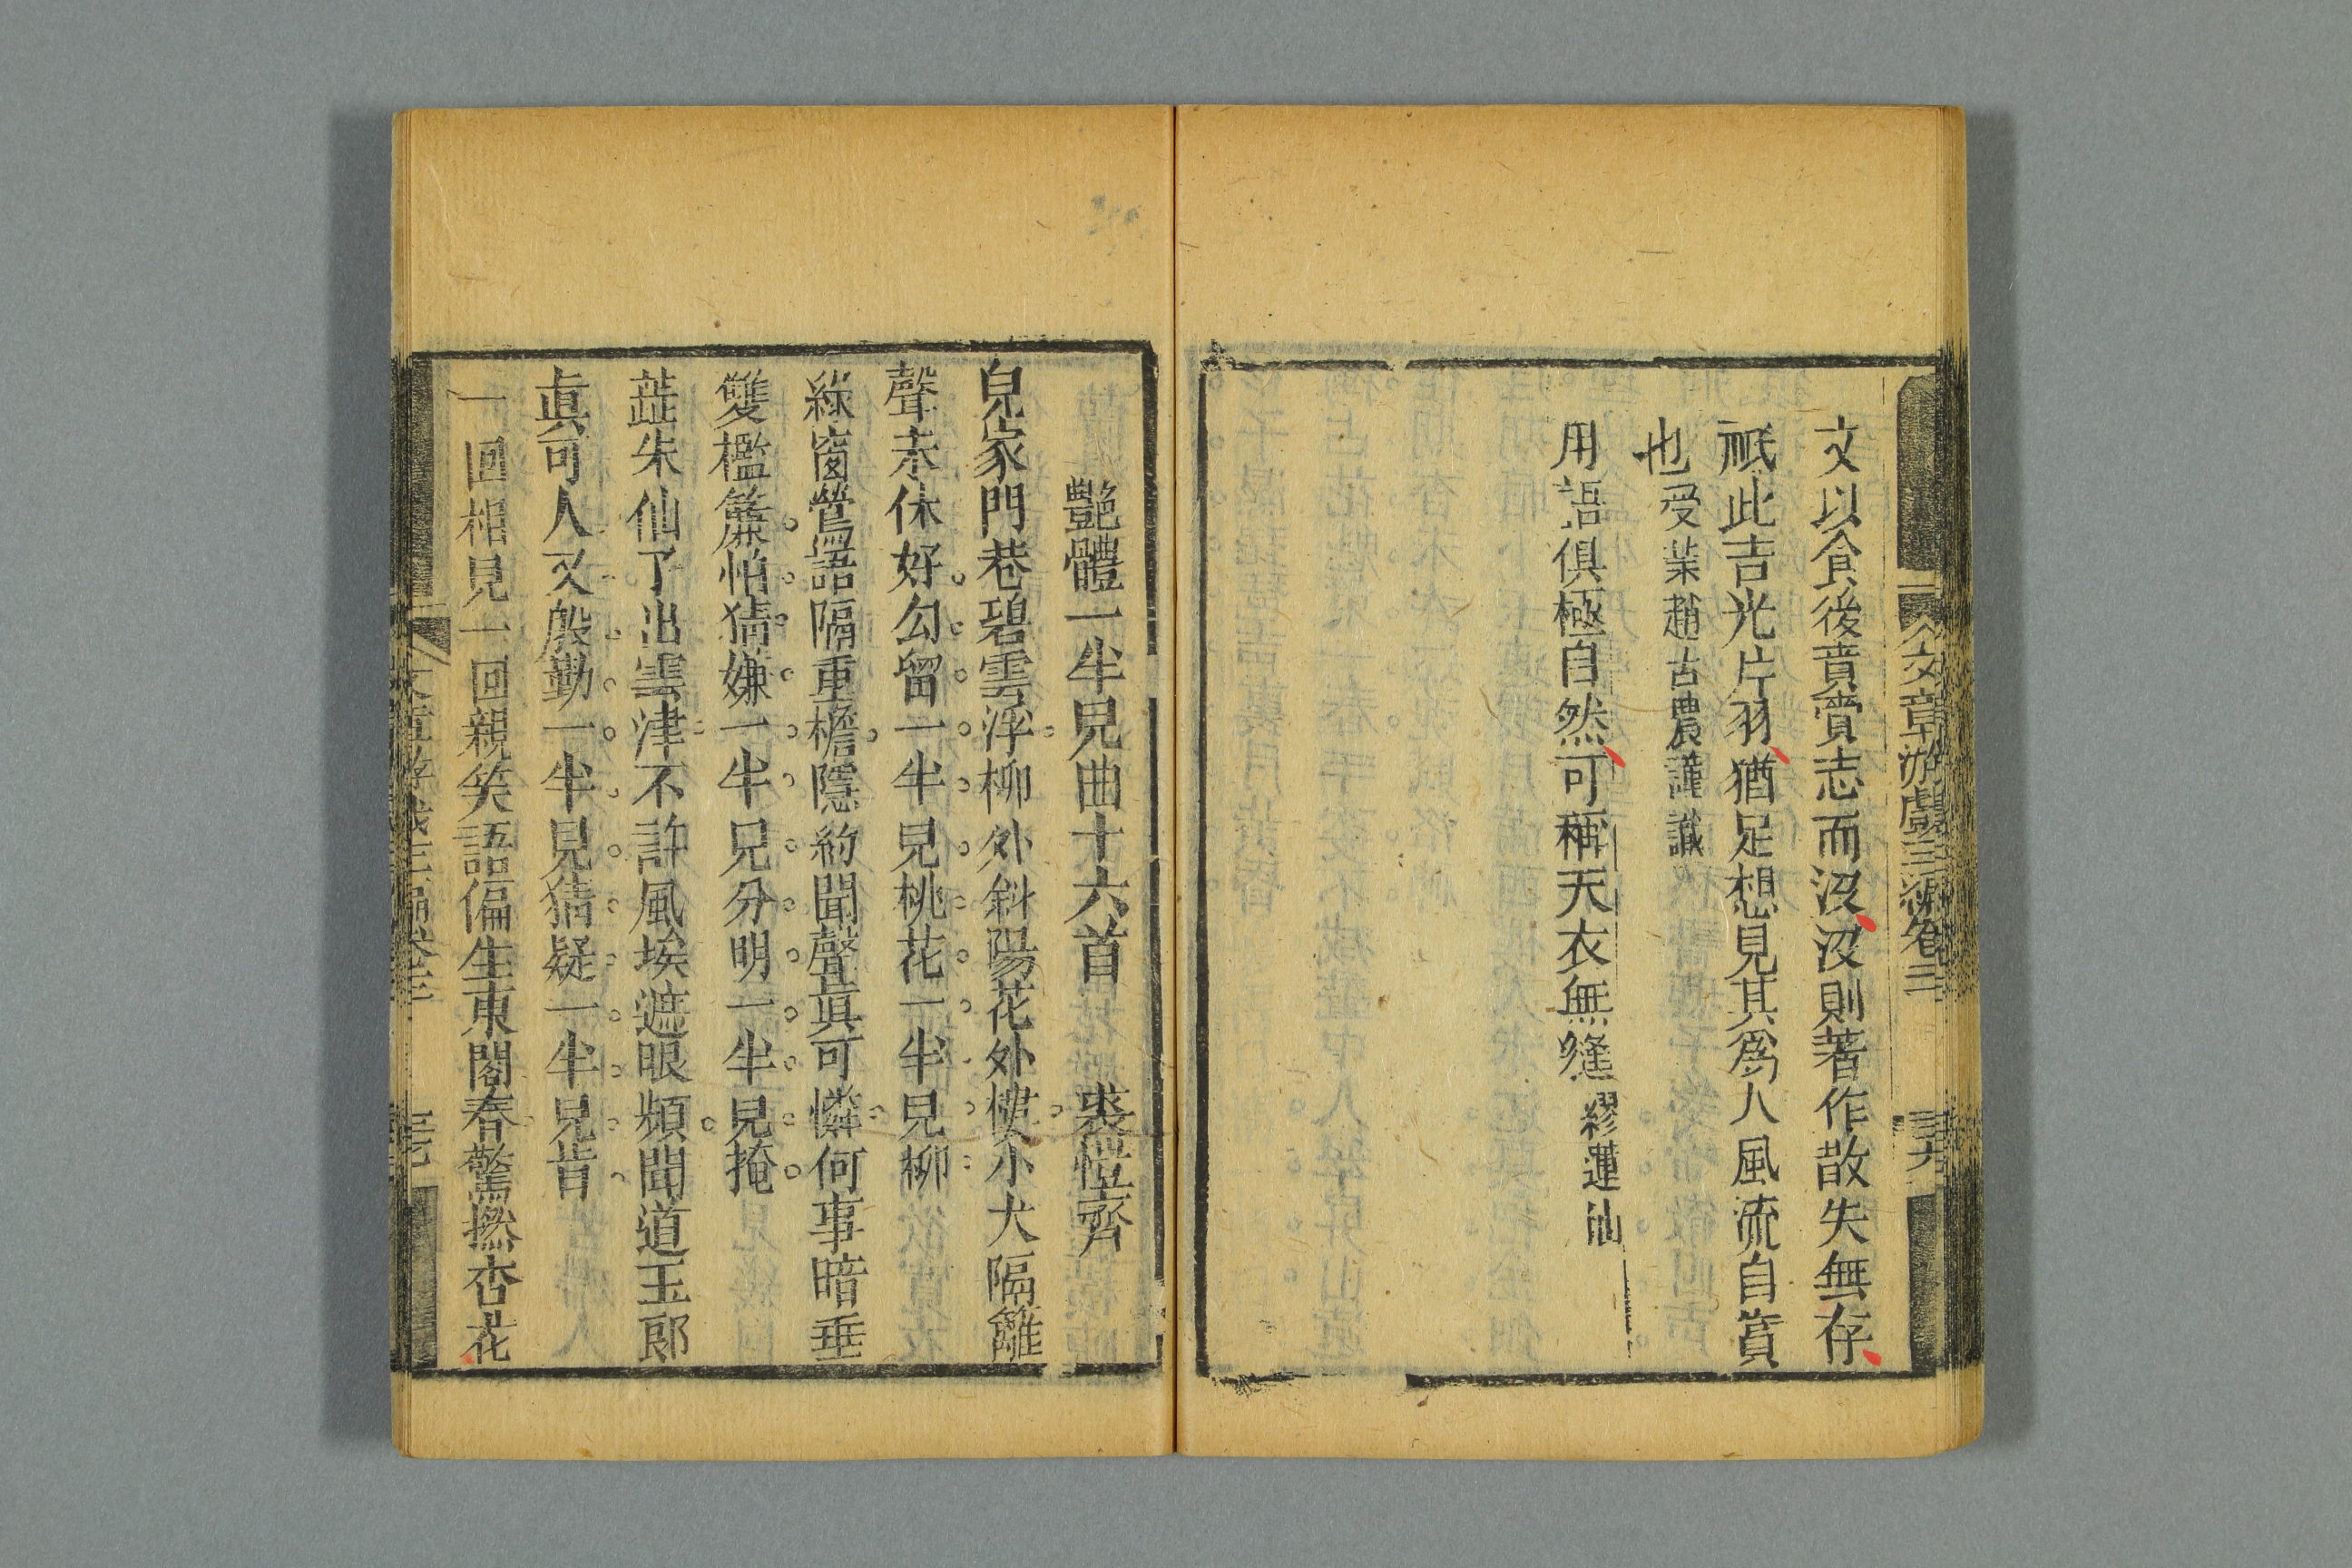 文章游戲三編卷三
三六
文以食後賁賣志而沒沒則著作散失無存
祇此吉光片羽猶足想見其爲人風流自賞
也受業趙古農謹識
用語俱極自然可稱天衣無縫 繆蓮仙
艶體一半兒曲十六首 裘愷齊
兒家門巷碧雲浮柳外斜陽花外樓小犬隔籬
聲未休好勾留一半兒桃花一半兒柳
綠窗鶯語隔重檐隱約聞聲眞可憐何事暗垂
雙檻簾怕猜嫌一半兒分明一半兒掩
蓝朱仙了出雲津不許風埃遮眼頻聞道玉郎
眞可人又殷勤一半兒猜疑一半兒肯
一回相見一回親笑語偏生東閣春驚撚杏花
文章游戲三編卷三
三七